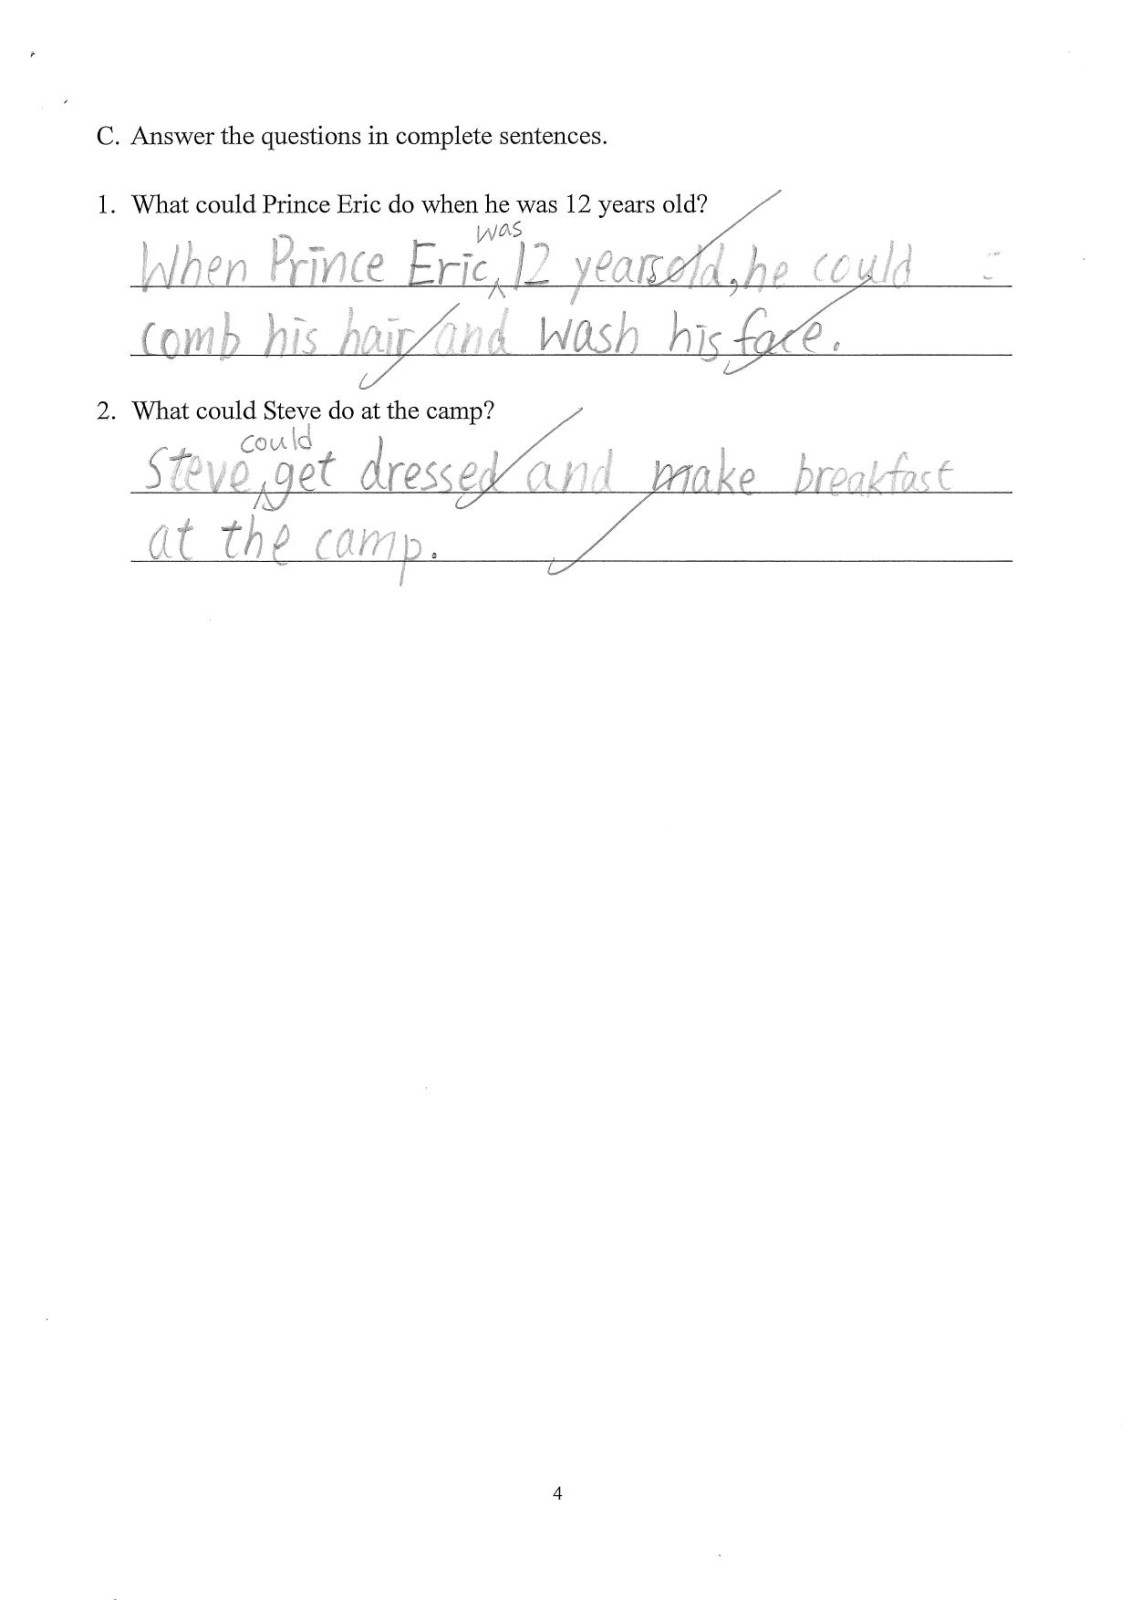 C. Answer the questions in complete sentences.
1. What could Prince Eric do when he was 12 years old?
was
When Prince Eric 12 years old, he could
comb his hair and wash his face.
2. What could Steve do at the camp?
could
Steve get dressed and make breakfast
at the camp.
4